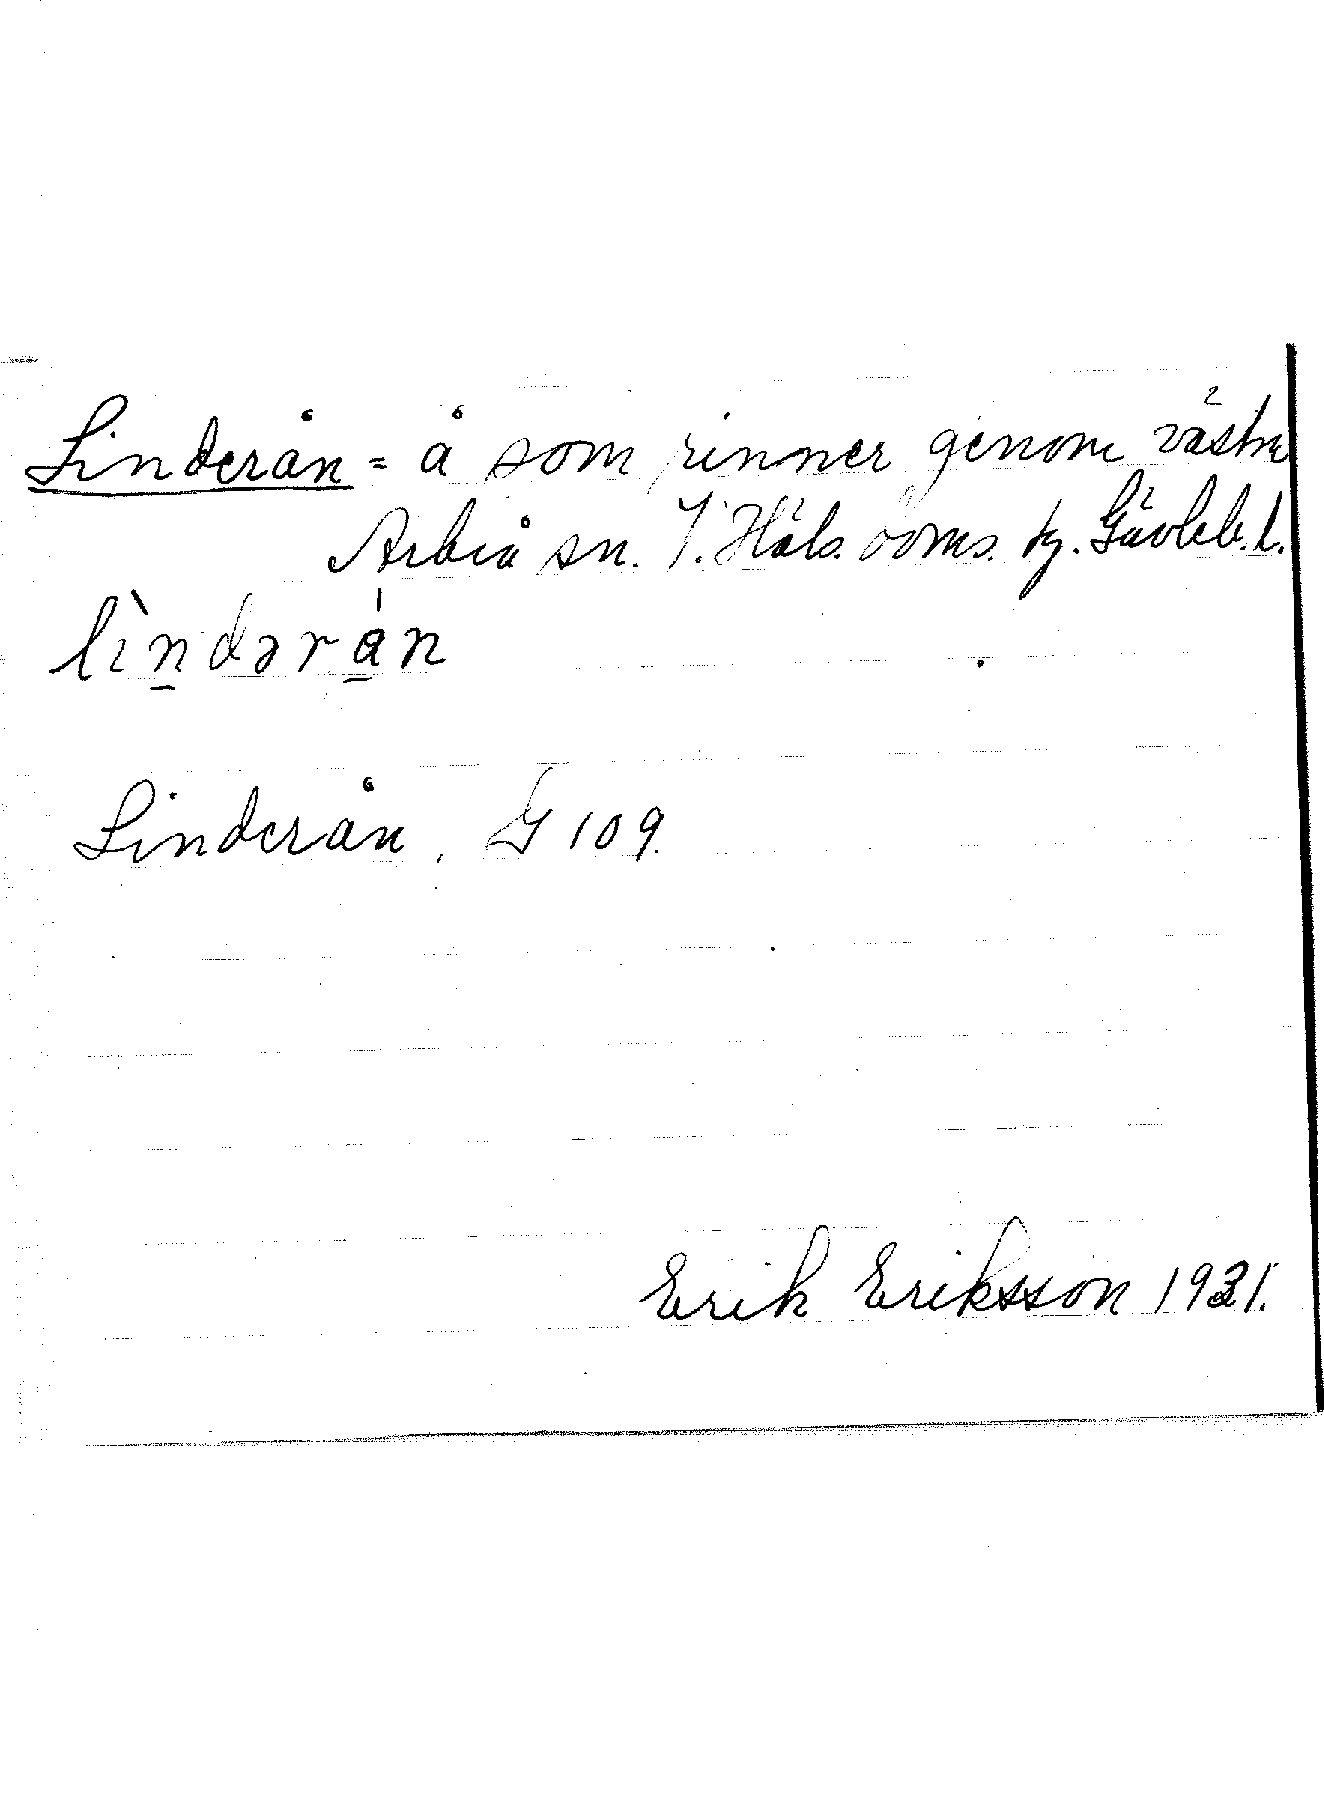 Linderån = å som rinner genom västra
Arbrå sn. V. Häls. doms. tg. Gävleb. l.
lìndərån
Linderån, G 109.
Erik Eriksson 1931.